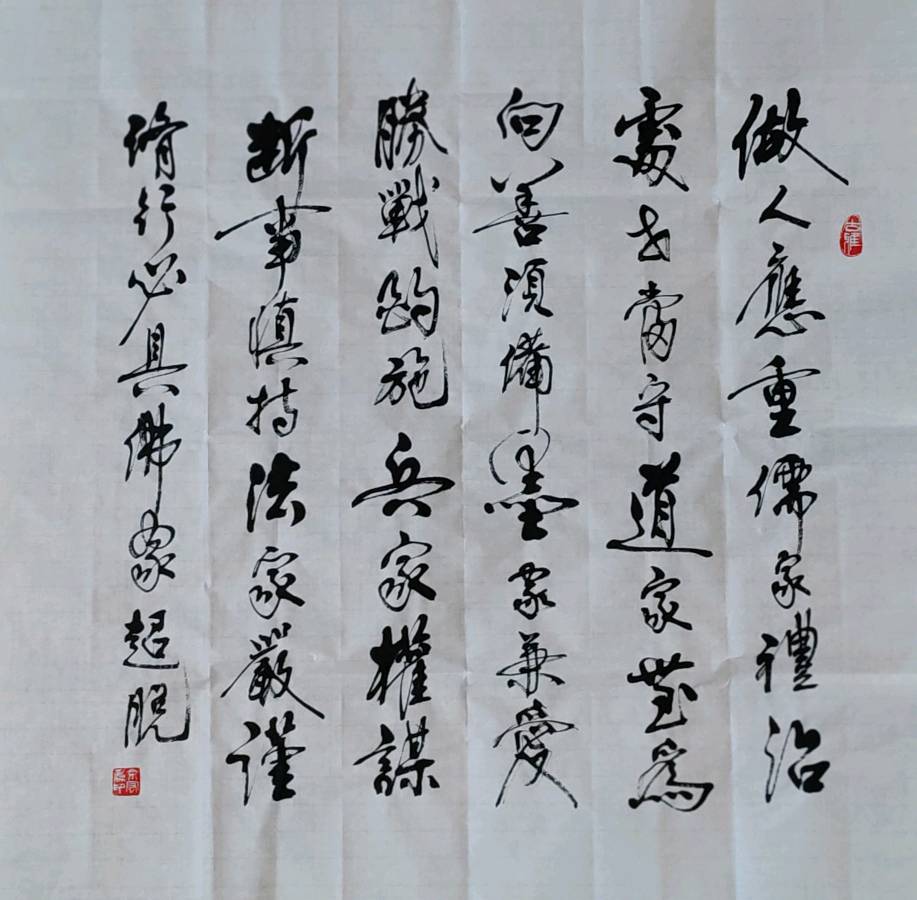 做人應重儒家禮治
處世當守道家無爲
向善須備墨家兼愛
勝戰施兵家權謀
断事慎持法家嚴謹
脩行必具佛家超脫
古雅